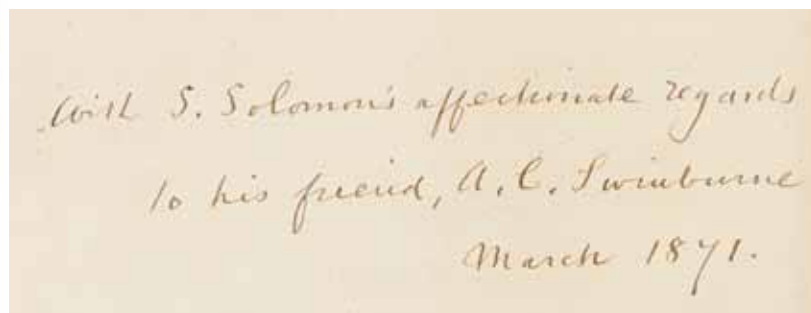 With S. Solomon's affectionate regards
to his friend, A. C. Swinburne
March 1871.